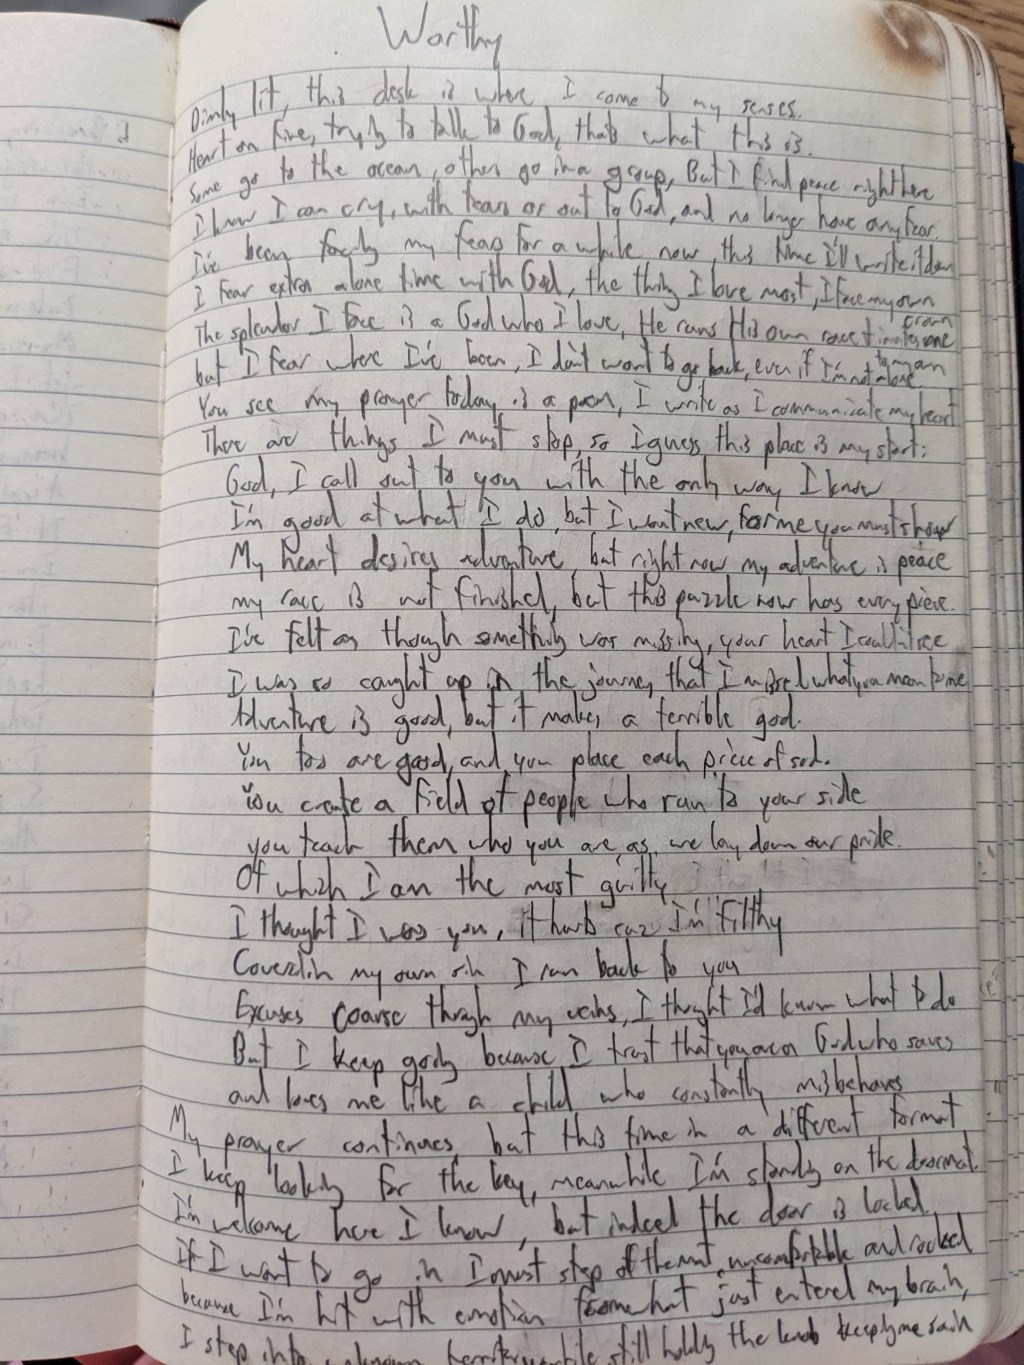 Worthy
Dimly lit, this desk is where I come to my senses.
Heart on fire, trying to talk to God, thats what this is.
Some go to the ocean, others go in a group, But I find peace right here
I know I can cry, with tears or out to God, and no longer have any fear.
I've been facing my fears for a while now, this time I'll write it down
I fear extra alone time with God, the thing I love most, I face my own crown
The splendor I face is a God who I love, He runs His own race + invites me to my own
but I fear where I've been, I don't want to go back, even if I'm not alone
You see my prayer today is a poem, I write as I communicate my heart
There are things I must stop, so I guess this place is my start:
God, I call out to you with the only way I know
I'm good at what I do, but I want new, for me you must show
My heart desires adventure, but right now my adventure is peace
my race is not finished, but this puzzle now has every piece.
I've felt as though something was missing, your heart I couldn't see
I was so caught up in the journey that I missed what you mean to me
Adventure is good, but it makes a terrible god.
You too are good, and you place each piece of sod.
You create a field of people who run to your side
you teach them who you are, as we lay down our pride.
Of which I am the most guilty
I thought I was you, it hurts cuz I'm filthy
Covered in my own sin I ran back to you
Excuses coarse through my veins, I thought I'd know what to do
But I keep going because I trust that you are a God who saves
and loves me like a child who constantly misbehaves
My prayer continues, but this time in a different format
I keep looking for the key, meanwhile I'm standing on the doormat.
I'm welcome here I know, but indeed the door is locked
If I want to go in I must step of the mat, uncomfortable and rocked
because I'm hit with emotion from what just entered my brain,
I step into unknown territory while still holding the knob keeping me sain